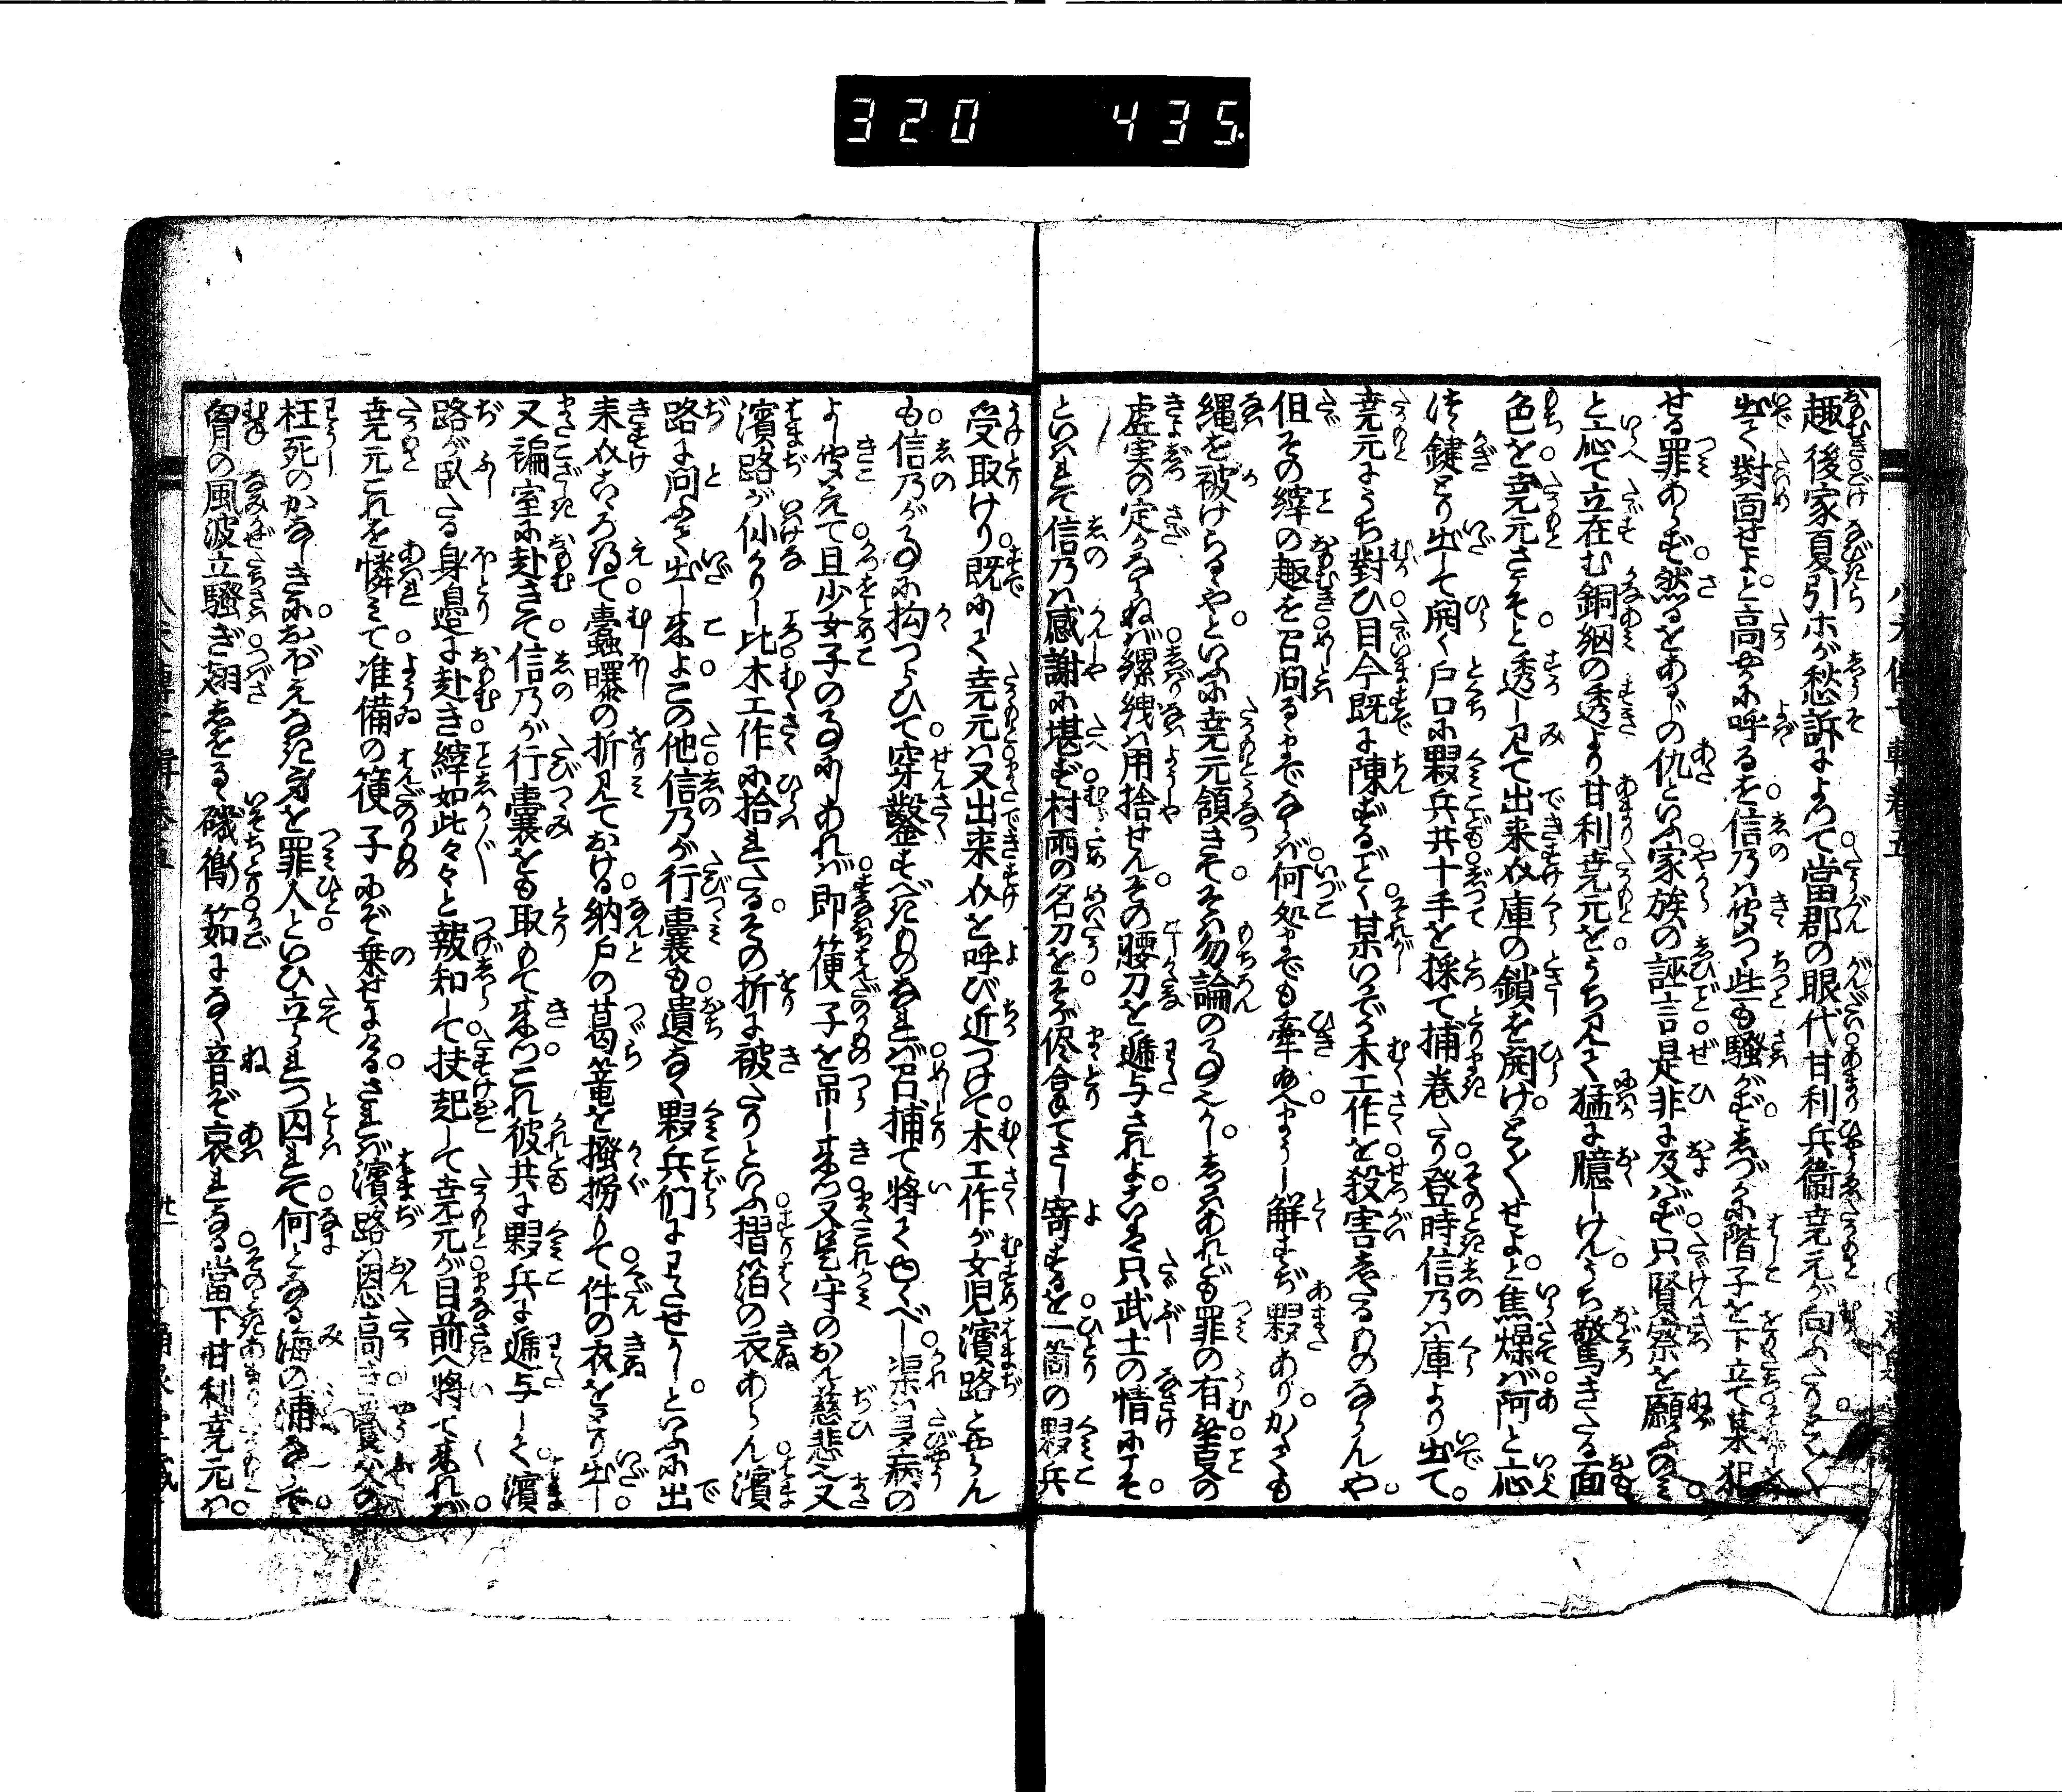 320 435
趣後家夏引ホが愁訴によつて當郡の眼代甘利兵衞尭元が向ふたりとく
出て對面せよと高やかに呼るを信乃は聞つゝ些も騒がずしづかに階子を下立て某犯
せる罪あらず然るをあるじの仇といふ家族の誣言是非に及ばず只賢察を願ふのみ
と応て立在む銅網の透より甘利尭元をうち見て猛に臆しけんうち驚きたる面
色を尭元さこそと透し見て出来介庫の鎖を開けとくせよと焦燥ば阿と応
つゝ鍵とり出して開く戸口に夥兵共十手を採て捕巻たり登時信乃は庫より出て
尭元にうち對ひ目今既に陳ずるごとく某いかでか木工作を殺害したるものならんや
但その縡の趣を召問るゝまでならば何処までも牽れゆかまし解すぢ夥ありかくても
縄を被けらるゝやといふに尭元領きてそは勿論の事ながらしかれども罪の有無言の
虚実の定かならねば縲絏は用捨せんその腰刀を逓与されよこは只武士の情にこそ
といはれて信乃は感謝に堪ず村雨の名刀をそが侭合してさし寄するを一箇の夥兵
受取けり既にして尭元は又出来介を呼び近つけて木工作が女児濱路とやらん
も信乃が事に拘つらひて穿鑿すべきものなれば召捕て将てゆくべし渠は多病の
より聞えて且少女子の事にしあれば即箯子を吊し来つ又是守のおん慈悲也又
濱路が稚かりし比木工作に拾れたるその折に被たりといふ摺箔の衣あらん濱
路に問ふて出し来よこの他信乃が行囊も遺なく夥兵们にわたせかしといふに出
来介はこゝろ得て蟲曝の折見ておける納戸の葛篭を掻撈りて件の衣をとり出し
又褊室に赴きて信乃が行囊をも取もて来つこれ彼共に夥兵に逓与して濱
路が臥たる身邉に赴き縡如此々々と報和して扶起して尭元が目前へ将て来れば
尭元これを憐みて准備の箯子にぞ乗せにけるされば濱路は恩高き養父の
枉死のかなしきにおぼえなき身を罪人といひ立られつ囚れて何となる海の浦なみで
胷の風波立騒ぎ翅しをるゝ磯衝笳になく音ぞ哀れなる當下甘利尭元は